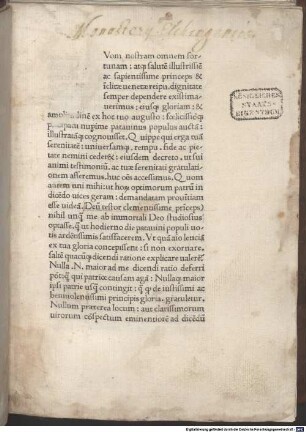 Monasterij
Vom nostram omnem for-
tunam: atq; salutē illustrissie
ac sapientissime princeps &
felice uenete reipu. dignitate
semper dependere existima-
uerimus: eiusq; gloriam: &
ex hoc tuo augusto: fœlicissioq;
nurpime patauinus populus auctā:
illustratāq; cognouisset. Quippe qui erga tuā
serenitatē: uniuersamq; rempu. fide ac pie
tate nemini cederet: eiusdem decreto, ut sui
animi testimoniū, ac tuæ serenitati gratulati-
onem afferremus, huc cōes accessimus. Quom
autem mihi ut hoꝝ optimorum patrū in
dicēdo uices geram: demandatam prouīciam
esse uideā. Deū testor clementissime prīceps
nihil unq me ab immortali Deo studiosius
optasse, q ut hodierno die patauini populi uo-
tis ardētissimis satisfacerem. Vt quā tio lentiā
ex tua gloria concepissent: si non exornare,
saltē quacūq; dicendi ratione explicare ualerē.
Nulla N. maior ad me dicendi ratio deferri
potest q ut patriæ causam agā: Nullusq; maior
ipsi patriæ usq; contingit: q q de iustissimi ac
beniuolentissimi principis gloria, gratuletur.
Nullum præterea locum: aut clarissimorum
uirorum cōspectum eminentiorē ad dicēdū
KÖNIGLICHES
STAATS-
EIGENTHUM